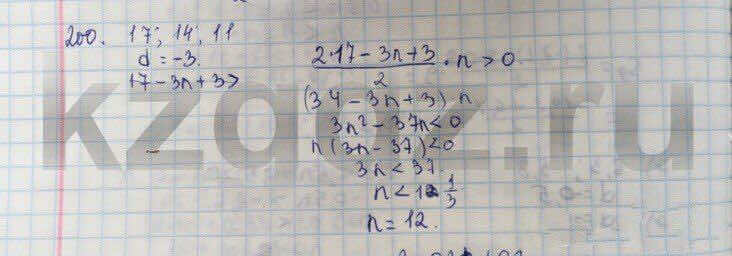 200. 17; 14; 11
d = -3.
17 - 3n + 3 >
2·17 - 3n + 3 / 2 · n > 0
(34 - 3n + 3) n
3n² - 37n < 0
n (3n - 37) < 0
3n < 37
n < 12 1/3
n = 12.
kzgdz.ru